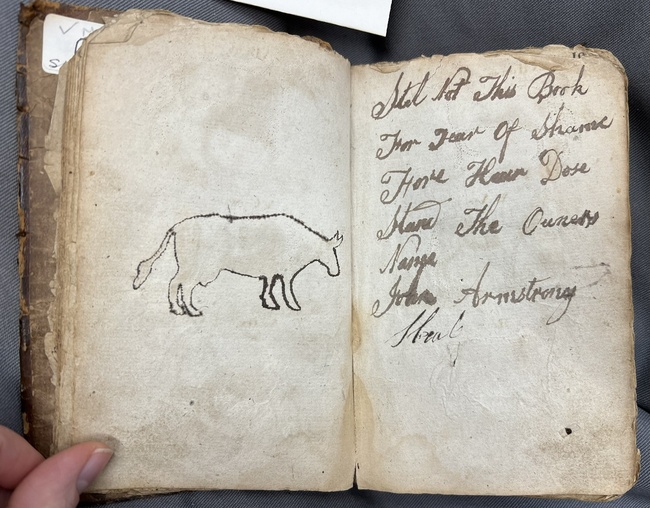 Stel Not This Book
For Fear Of Shame
Fore Hear Dose
Stand The Owners
Name
John Armstrong
Steal